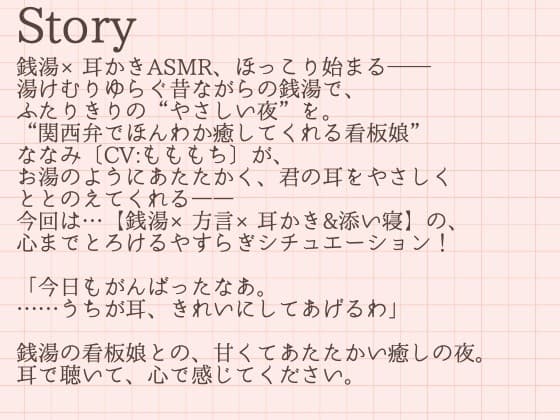 Story
銭湯×耳かきASMR、ほっこり始まる――
湯けむりゆらぐ昔ながらの銭湯で、
ふたりきりの“やさしい夜”を。
“関西弁でほんわか癒してくれる看板娘”
ななみ〔CV:もももち〕が、
お湯のようにあたたかく、君の耳をやさしく
ととのえてくれる――
今回は…【銭湯×方言×耳かき&添い寝】の、
心までとろけるやすらぎシチュエーション！
「今日もがんばったなあ。
……うちが耳、きれいにしてあげるわ」
銭湯の看板娘との、甘くてあたたかい癒しの夜。
耳で聴いて、心で感じてください。